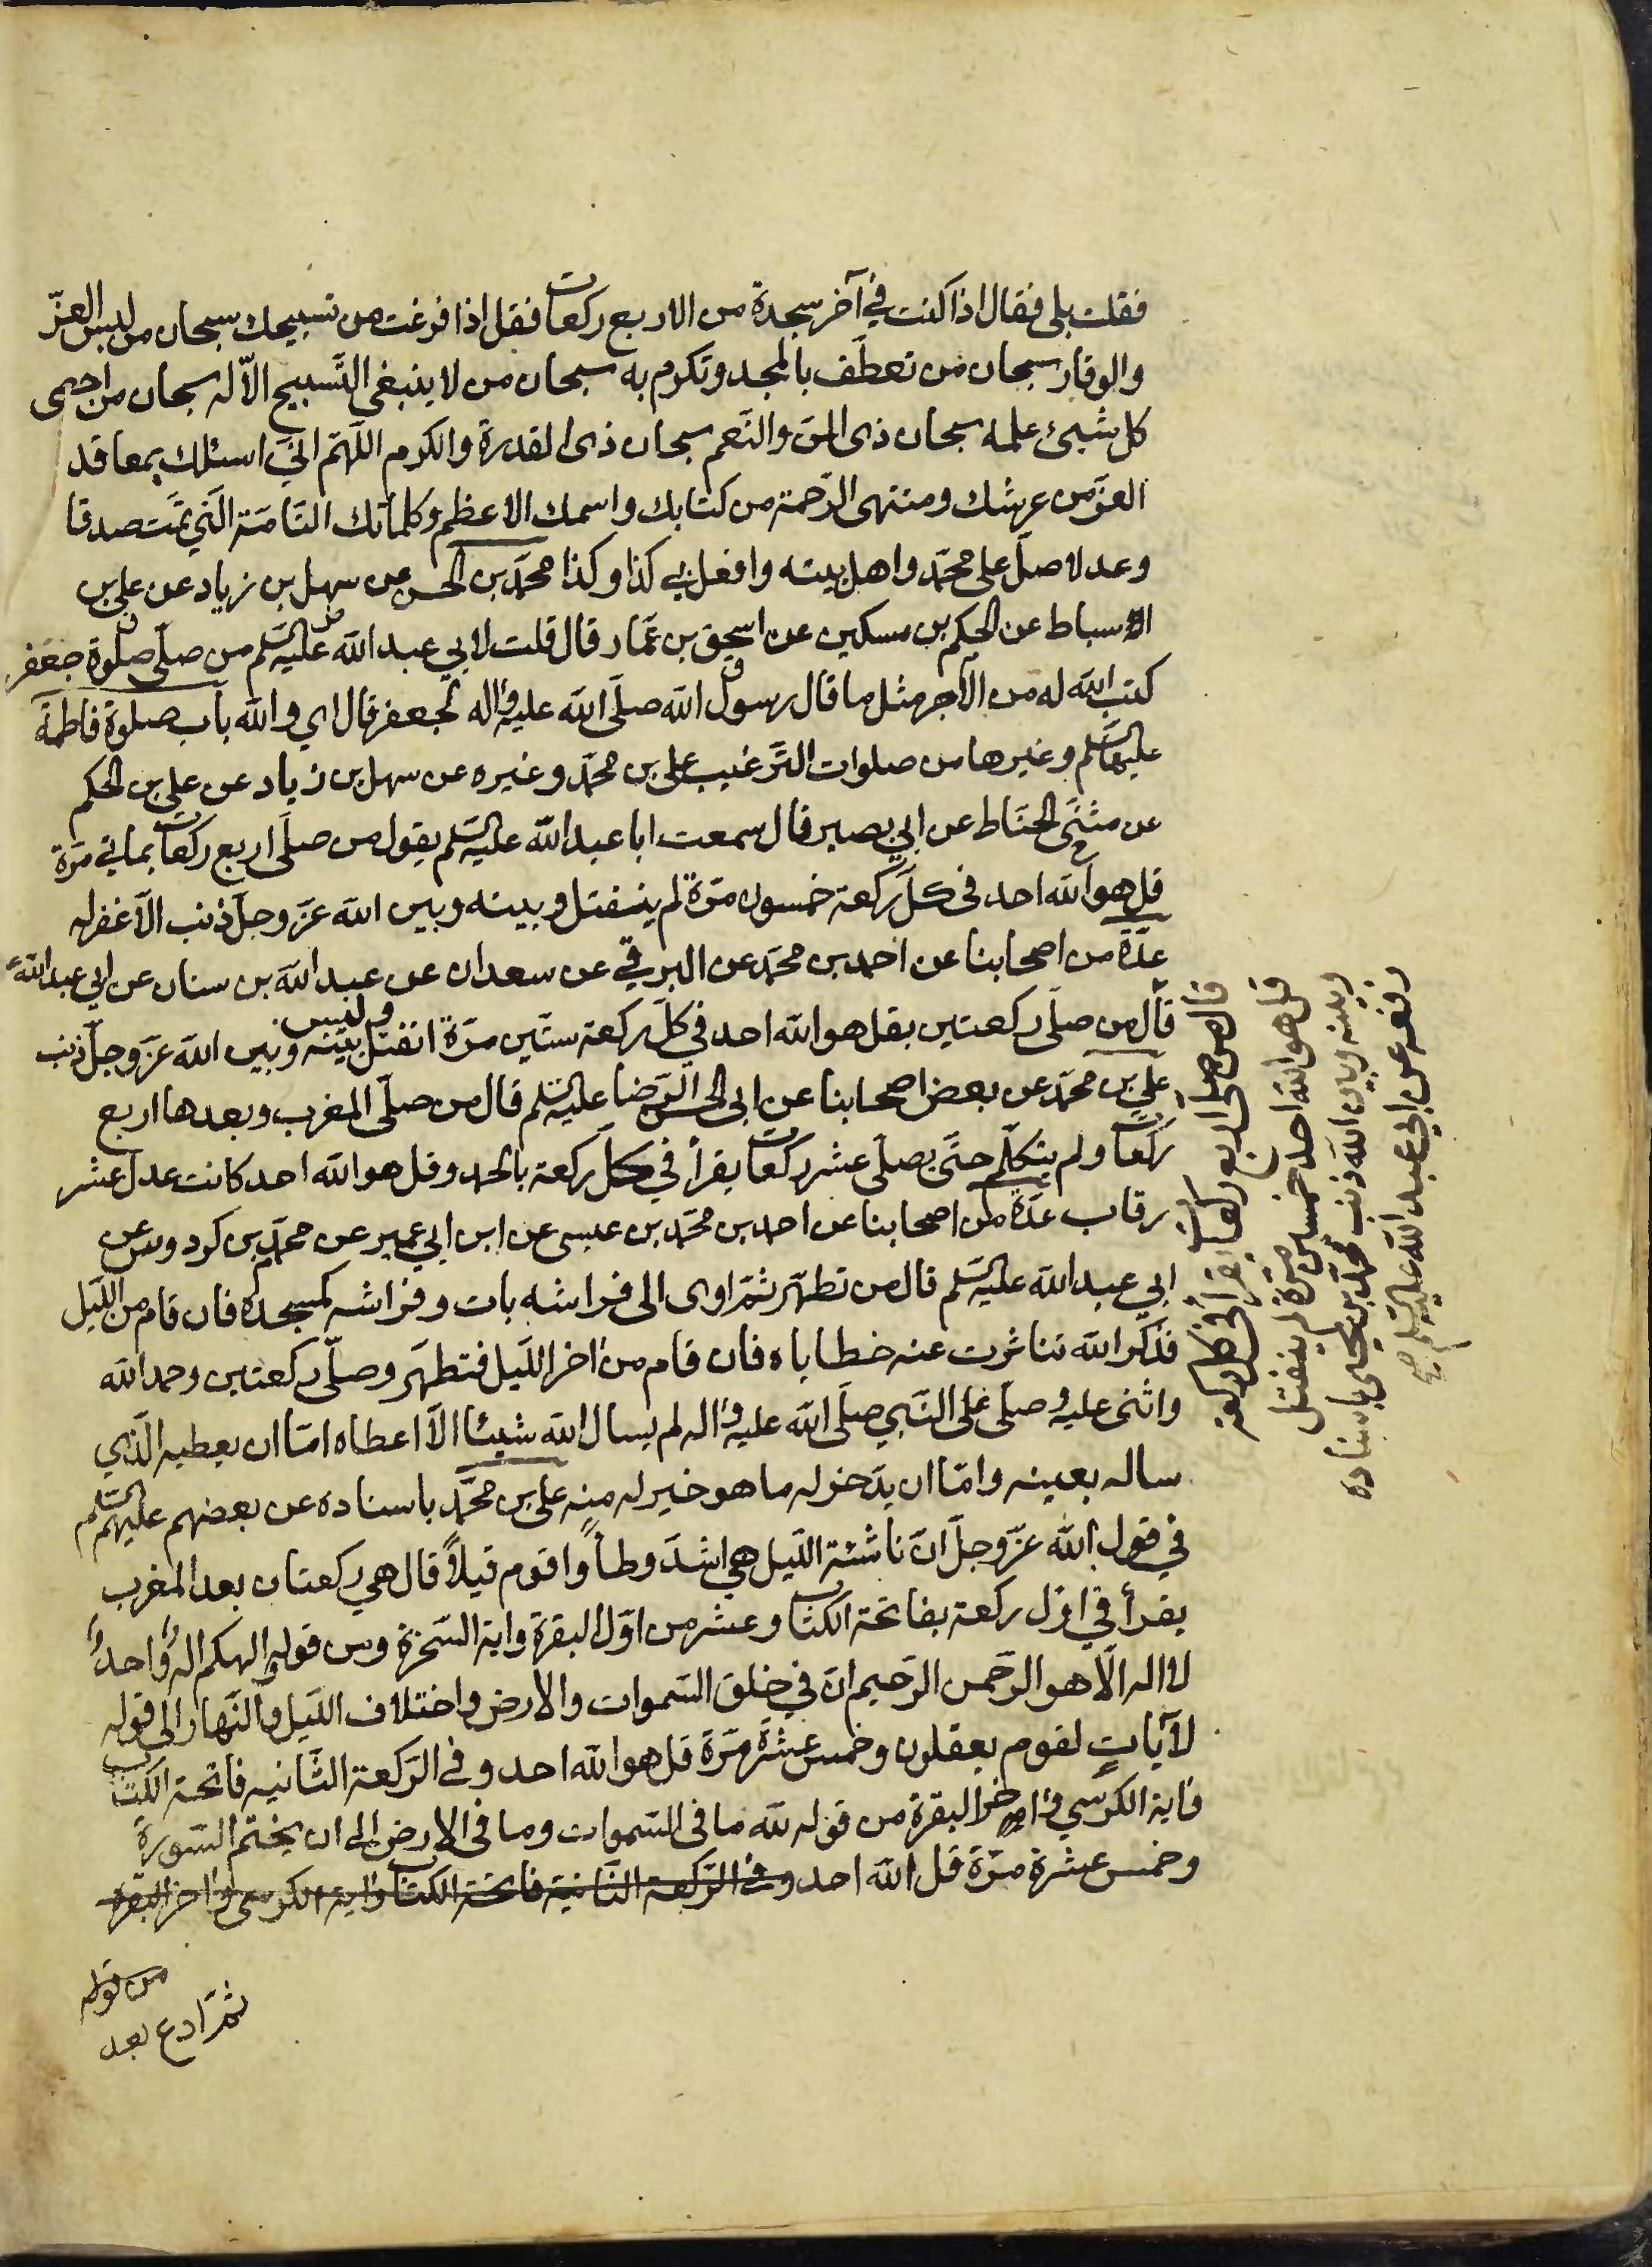 فقلت بلى فقال اذا كنت في آخر سجدة من الاربع ركعات فقل اذا فرغت من تسبيحك سبحان من لبس العزّ
والوقار سبحان من تعطّف بالمجد وتكرم به سبحان من لا ينبغي التّسبيح الّا له سبحان من احصى
كل شيئ علمه سبحان ذى المنّ والنّعم سبحان ذى القدرة والكرم اللّهمّ انّي اسئلك بمعاقد
العزّ من عرشك ومنتهى الرّحمة من كتابك واسمك الاعظم وكلماتك التّامّة الّتي تمّت صدقا
وعدلا صلّ على محمّد واهل بيته وافعل بي كذا وكذا محمّد بن الحسن عن سهل بن زياد عن علي بن
اسباط عن الحكم بن مسكين عن اسحق بن عمّار قال قلت لابي عبد الله عليه السّلم من صلّى صلوة جعفر
كتب الله له من الاجر مثل ما قال رسول الله صلّى الله عليه واله لجعفر قال اي والله باب صلوة فاطمة
عليها السّلم وغيرها من صلوات التّرغيب علي بن محمّد وغيره عن سهل بن زياد عن علي بن الحكم
عن مثنّى الحنّاط عن ابي بصير قال سمعت ابا عبد الله عليه السّلم يقول من صلّى اربع ركعات بمائي مرّة
قل هو الله احد فى كلّ ركعة خمسون مرّة لم ينفتل وبينه وبين الله عزّ وجلّ ذنب الّا غفر له
عدّة من اصحابنا عن احمد بن محمّد عن البرقي عن سعدان عن عبد الله بن سنان عن ابي عبد الله ع
قال من صلّى ركعتين بقل هو الله احد في كلّ ركعة ستّين مرّة انفتل وليس بينه وبين الله عزّ وجلّ ذنب
علي بن محمّد عن بعض اصحابنا عن ابى الحسن الرّضا عليه السّلم قال من صلّى المغرب وبعدها اربع
ركعات ولم يتكلّم حتّى يصلّى عشر ركعات يقرأ في كلّ ركعة بالحمد وقل هو الله احد كانت عدل عشر
رقاب عدّة من اصحابنا عن احمد بن محمّد بن عيسى عن ابن ابي عمير عن محمّد بن كردوس عن
ابي عبد الله عليه السّلم قال من تطهّر ثمّ اوى الى فراشه بات وفراشه كمسجده فان قام من اللّيل
فذكر الله تناثرت عنه خطاياه فان قام من اخر اللّيل فتطهّر وصلّى ركعتين وحمد الله
واثنى عليه وصلّى على النّبي صلّى الله عليه واله لم يسال الله شيئا الّا اعطاه امّا ان يعطيه الّذي
ساله بعينه وامّا ان يدّخر له ما هو خير له منه علي بن محمّد باسناده عن بعضهم عليهم السّلم
في قول الله عزّ وجلّ انّ ناشئة اللّيل هي اشدّ وطأ واقوم قيلاً قال هي ركعتان بعد المغرب
يقرأ في اوّل ركعة بفاتحة الكتاب وعشر من اوّل البقرة واية السّخرة ومن قوله والهكم اله واحد
لا اله الّا هو الرّحمن الرّحيم انّ في خلق السّموات والارض واختلاف اللّيل والنّهار الى قوله
لآيات لقوم يعقلون وخمس عشرة مرّة قل هو الله احد وفي الرّكعة الثّانيه فاتحة الكتاب
واية الكرسي واخر البقرة من قوله لله ما فى السّموات وما فى الارض الى ان يختم السّورة
وخمس عشرة مرّة قل الله احد وفي الرّكعة الثّانية فاتحة الكتاب واية الكرسي واخر البقرة
من قوله
ثمّ ادع بعد
قال من صلى اربع ركعات يقرا في كل ركعة
قل هو الله احد خمسين مرّة لم ينفتل
وبينه وبين الله ذنب محمّد بن يحيى باسناده
رفعه عن ابي عبد الله عليه السّلم صح